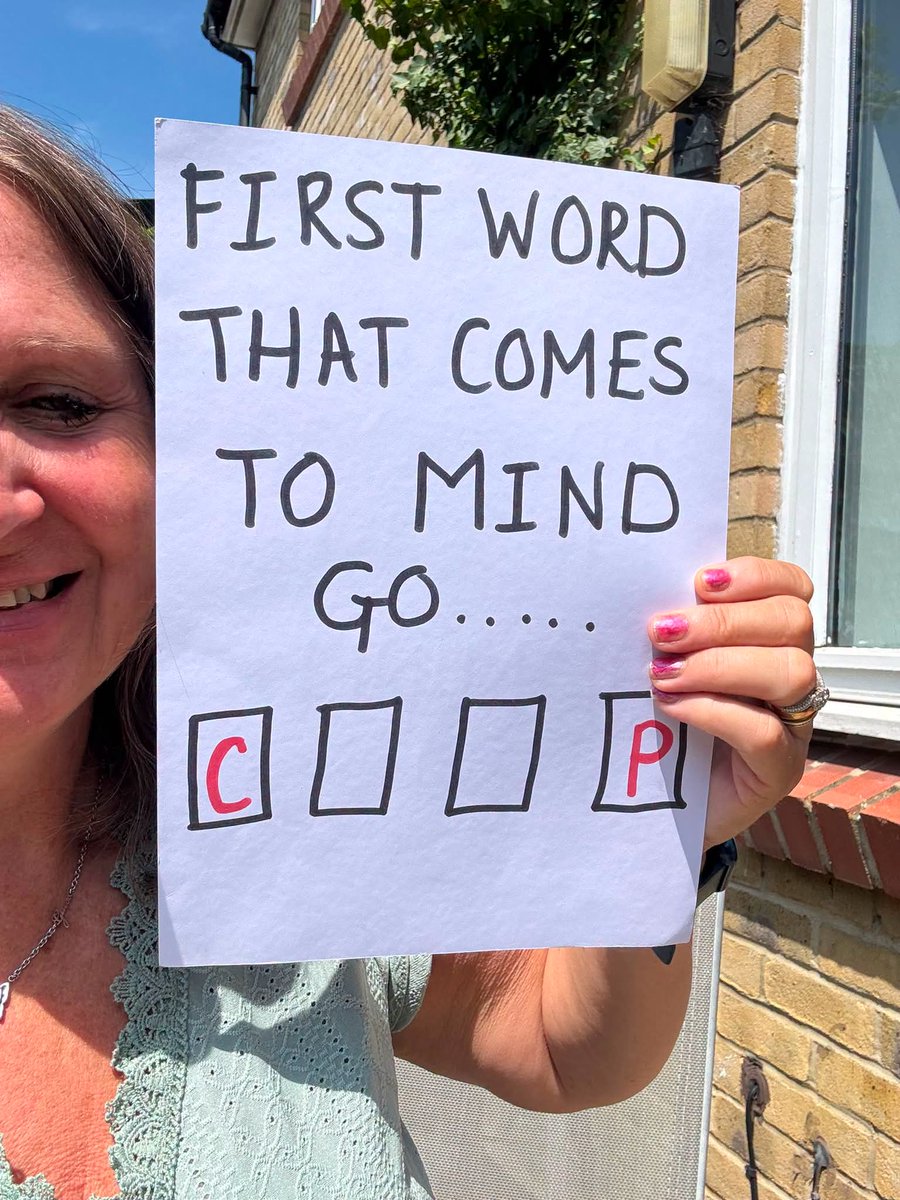 FIRST WORD
THAT COMES
TO MIND
GO.....
C P